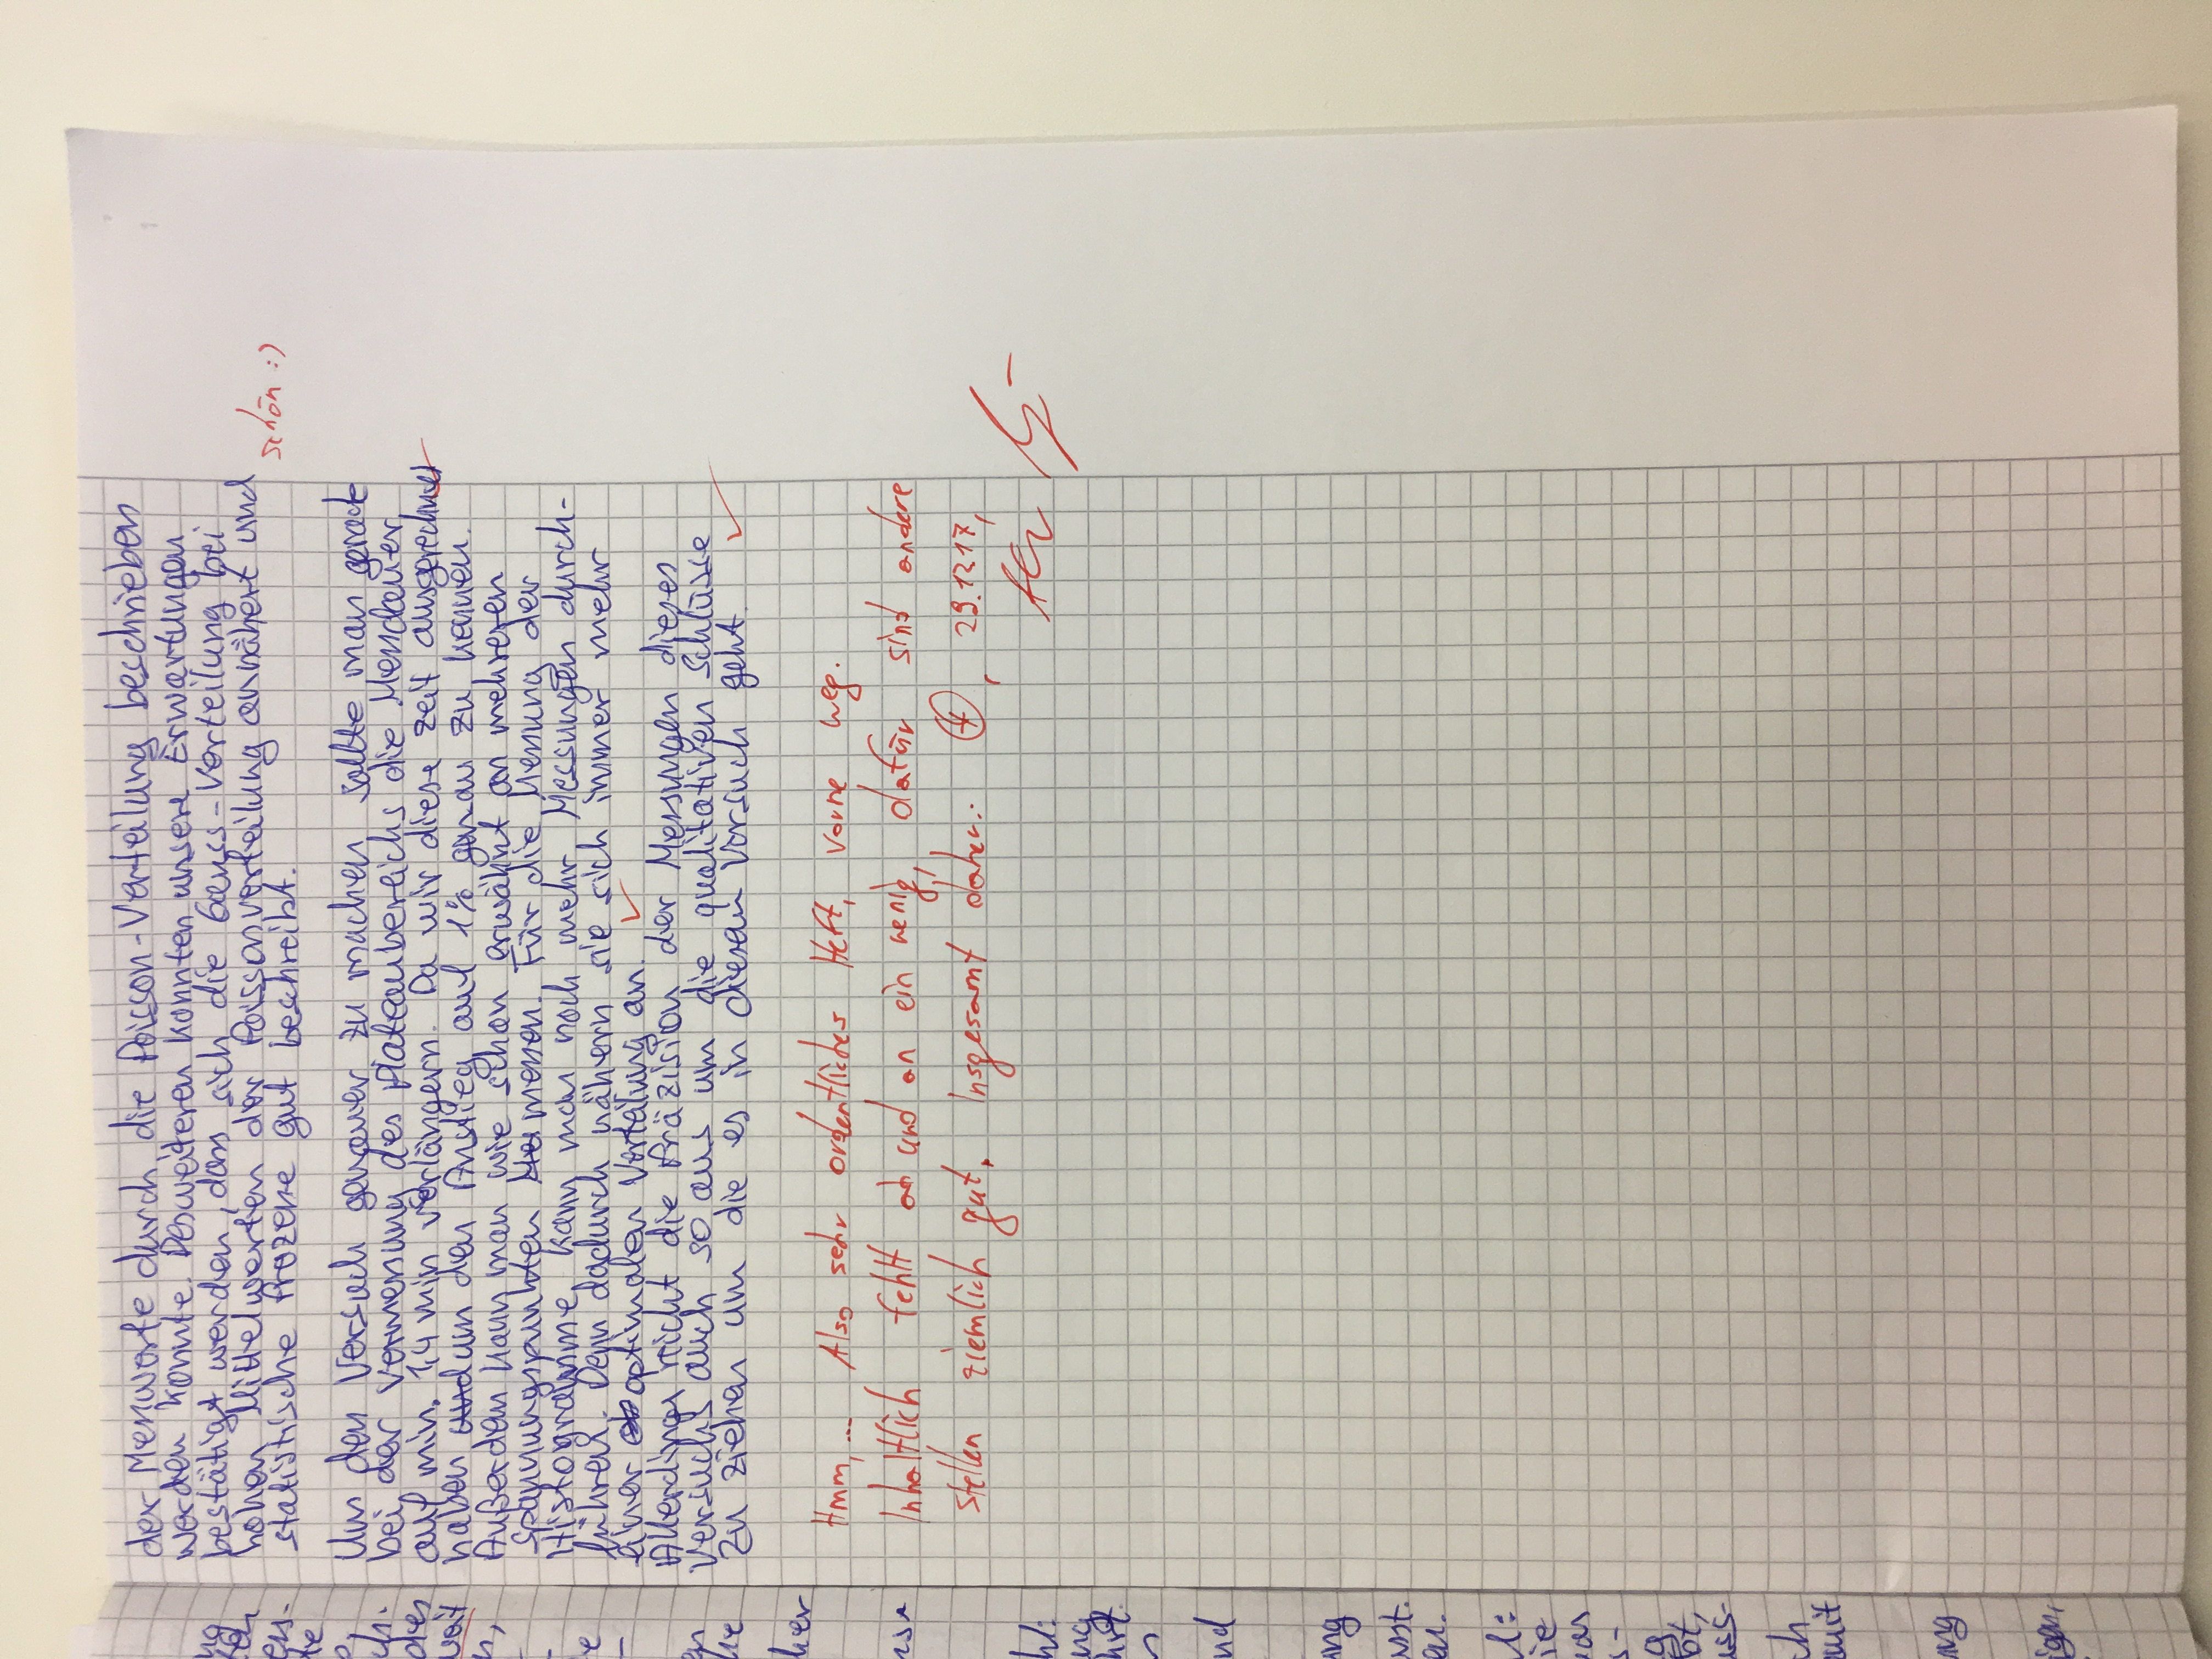 der Messwerte durch die Poisson-Verteilung beschrieben
werden konnte. Desweiteren konnten unsere Erwartungen
bestätigt werden, dass sich die Gauss-Verteilung bei
hohen Mittelwerten der Poissonverteilung annähert und
statistische Prozesse gut beschreibt.
schön :)
Um den Versuch genauer zu machen sollte man gerade
bei der Vermessung des Plateaubereichs die Messdauer
auf min. 1,4 min verlängern. Da wir diese Zeit ausgerechnet
haben um den Anstieg auf 1% genau zu kennen.
Außerdem kann man wie schon erwähnt an mehreren
Spannungspunkten messen. Für die Messung der
Histogramme kann man noch mehr Messungen durch-
führen. Denn dadurch nähern sie sich immer mehr
einer optimalen Verteilung an. ✓
Allerdings reicht die Präzision der Messungen dieses
Versuchs auch so aus um die qualitativen Schlüsse
zu ziehen um die es in diesem Versuch geht. ✓
Hmm, ... Also sehr ordentliches Heft, vorne weg.
Inhaltlich fehlt ab und an ein wenig, dafür sind andere
stellen ziemlich gut. Insgesamt daher.: ⊕, 29.12.17,